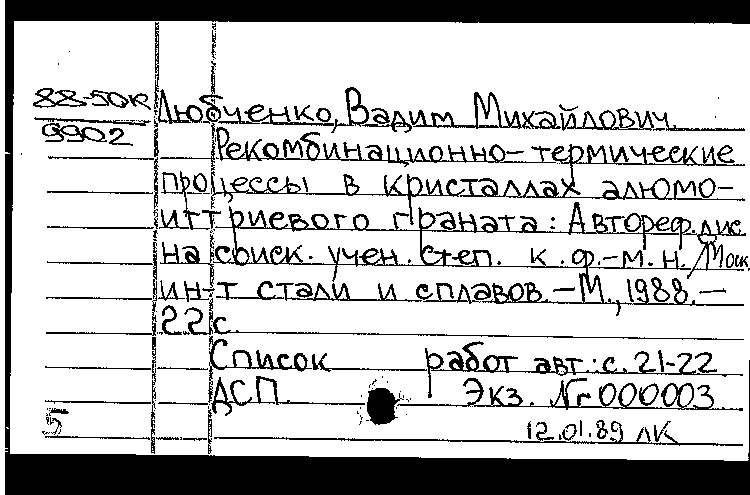 88-50к Любченко, Вадим Михайлович.
9902 Рекомбинационно-термические
процессы в кристаллах алюмо-
иттриевого граната: Автореф. дис.
на соиск. учен. степ. к. ф.-м. н. / Моск.
ин-т стали и сплавов. - М., 1988. -
22 с.
Список работ авт.: с. 21-22
ДСП. Экз. Nr 000003
5 12.01.89 ЛК